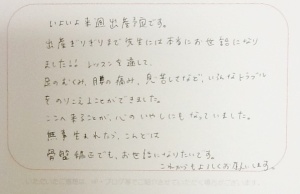 いよいよ来週出産予定です。
出産ぎりぎりまで先生には本当にお世話になり
ました！！ レッスンを通して、
足のむくみ、腰の痛み、息苦しさなど、いろんなトラブル
をのりこえることができました。
ここへ来ることが、心のいやしにもなっていました。
無事生まれたら、こんどは
骨盤矯正でも、お世話になりたいです。
これからもよろしくお願いします。